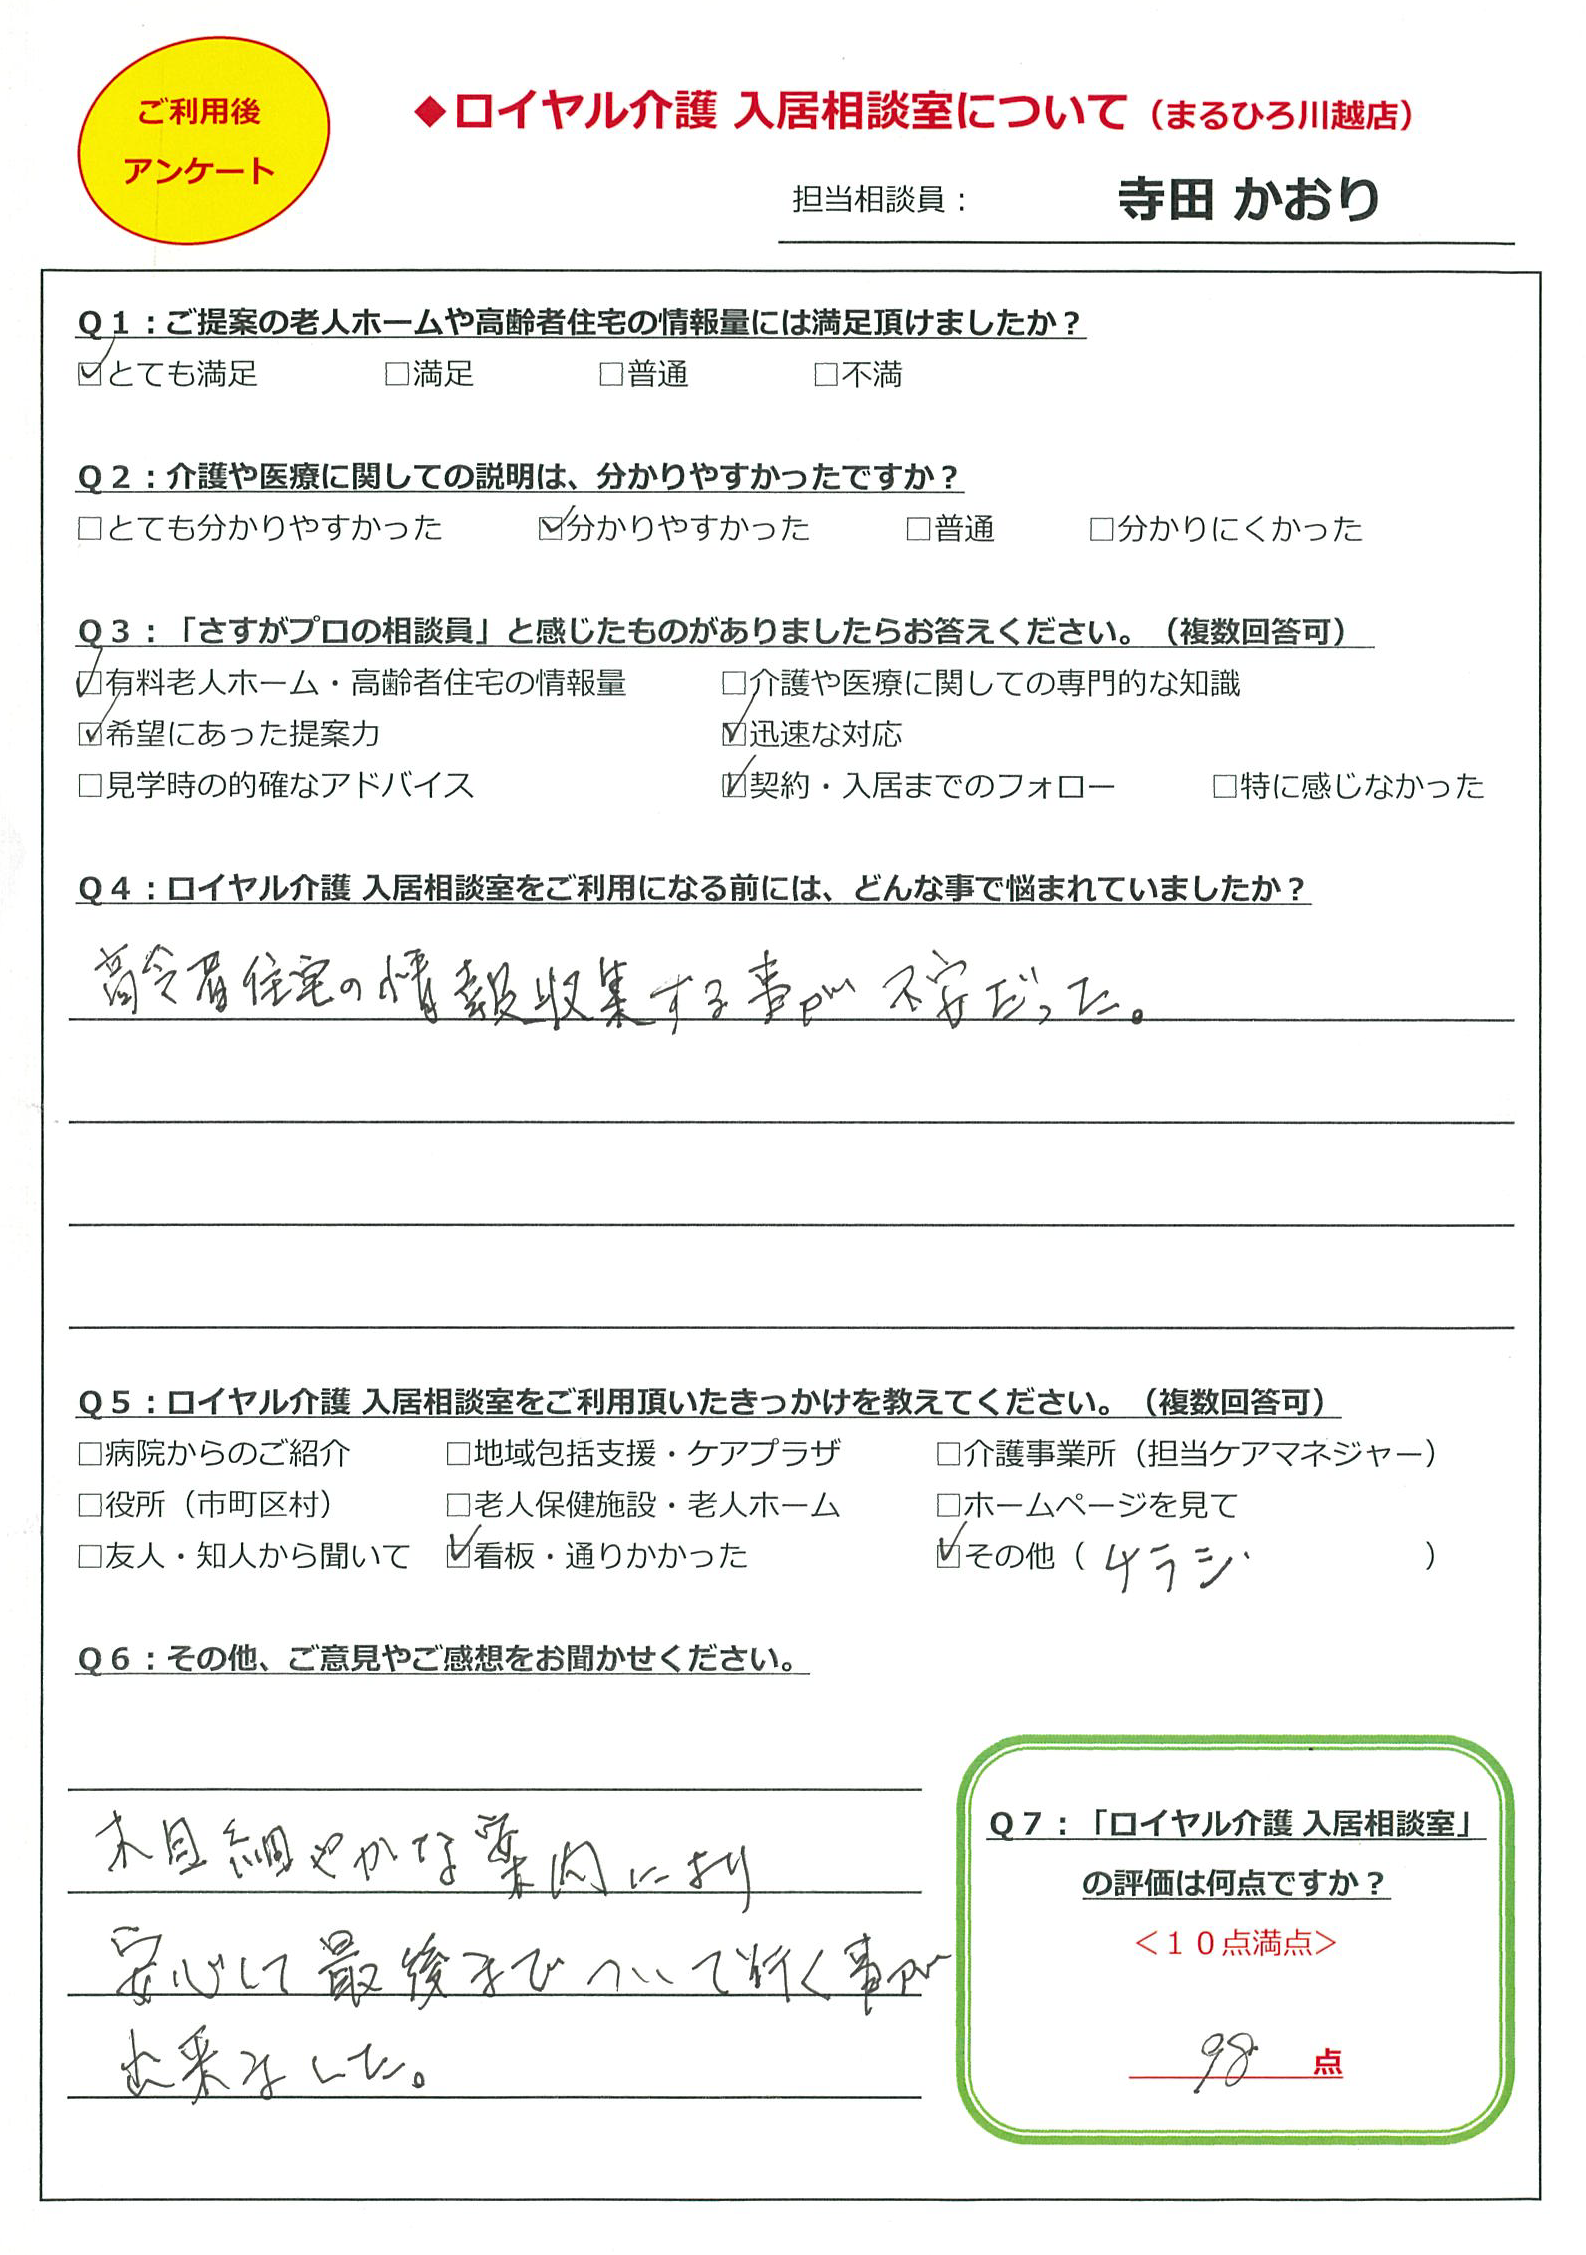 ご利用後
アンケート
◆ロイヤル介護 入居相談室について（まるひろ川越店）
担当相談員： 寺田 かおり
Q1：ご提案の老人ホームや高齢者住宅の情報量には満足頂けましたか？
☑とても満足 □満足 □普通 □不満
Q2：介護や医療に関しての説明は、分かりやすかったですか？
□とても分かりやすかった ☑分かりやすかった □普通 □分かりにくかった
Q3：「さすがプロの相談員」と感じたものがありましたらお答えください。（複数回答可）
☑有料老人ホーム・高齢者住宅の情報量 □介護や医療に関しての専門的な知識
☑希望にあった提案力 ☑迅速な対応
□見学時の的確なアドバイス ☑契約・入居までのフォロー □特に感じなかった
Q4：ロイヤル介護 入居相談室をご利用になる前には、どんな事で悩まれていましたか？
高令者住宅の情報収集する事が不安だった。
Q5：ロイヤル介護 入居相談室をご利用頂いたきっかけを教えてください。（複数回答可）
□病院からのご紹介 □地域包括支援・ケアプラザ □介護事業所（担当ケアマネジャー）
□役所（市町区村） □老人保健施設・老人ホーム □ホームページを見て
□友人・知人から聞いて ☑看板・通りかかった ☑その他（チラシ）
Q6：その他、ご意見やご感想をお聞かせください。
木目細やかな案内により
安心して最後までついて行く事が
出来ました。
Q7：「ロイヤル介護 入居相談室」
の評価は何点ですか？
＜１０点満点＞
98 点